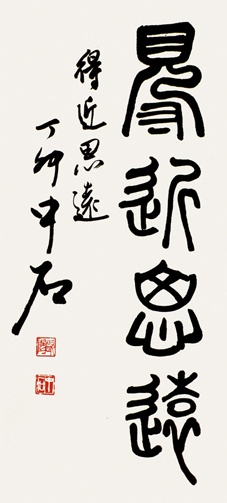 得近思遠
得近思遠
丁卯中石